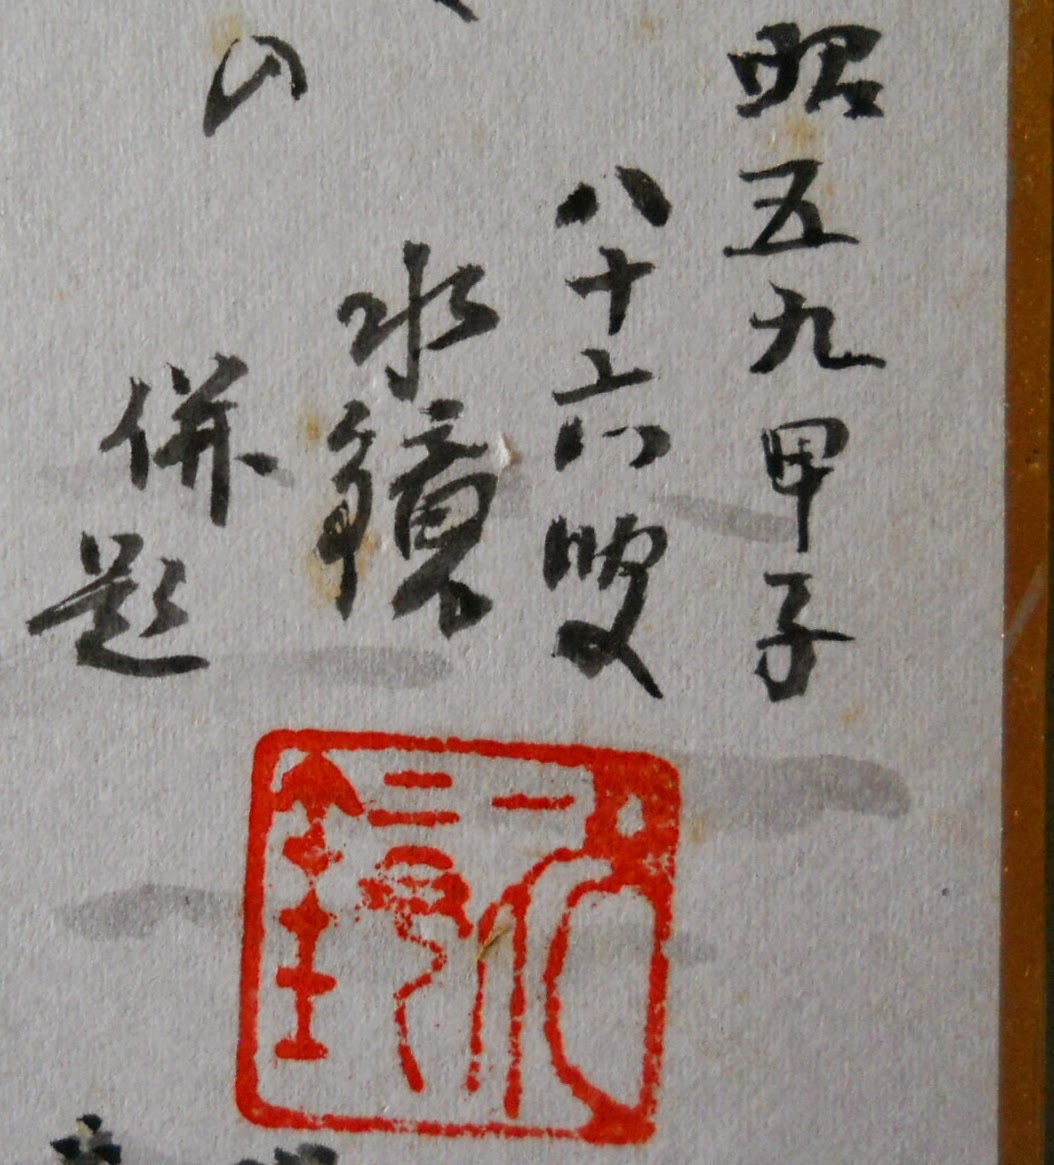 昭五九甲子
八十六叟
水鏡
併題
の